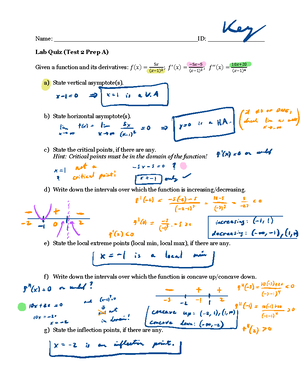 Key
Name: ID:
Lab Quiz (Test 2 Prep A)
Given a function and its derivatives: f(x) = 5x/(x−1)²; f'(x) = −5x−5/(x−1)³; f''(x) = 10x+20/(x−1)⁴
a) State vertical asymptote(s).
x−1=0 ⇒ x=1 is a V.A
b) State horizontal asymptote(s).
lim x→∞ f(x) = lim x→∞ 5x/(x−1)² = 0 ⇒ y=0 is a HA.
c) State the critical points, if there are any.
Hint: Critical points must be in the domain of the function!
f'(x)=0 or undef
x=1 not a critical point!
−5x−5=0
x=−1 only
d) Write down the intervals over which the function is increasing/decreasing.
increasing: (−1, 1)
decreasing: (−∞, −1), (1, ∞)
e) State the local extreme points (local min, local max), if there are any.
x = −1 is a local min
f) Write down the intervals over which the function is concave up/concave down.
f''(x)=0 or undef?
10x+20=0
10x=−20
x=−2
concave up: (−2, 1), (1, ∞)
concave down: (−∞, −2)
g) State the inflection points, if there are any.
x=−2 is an inflection point.